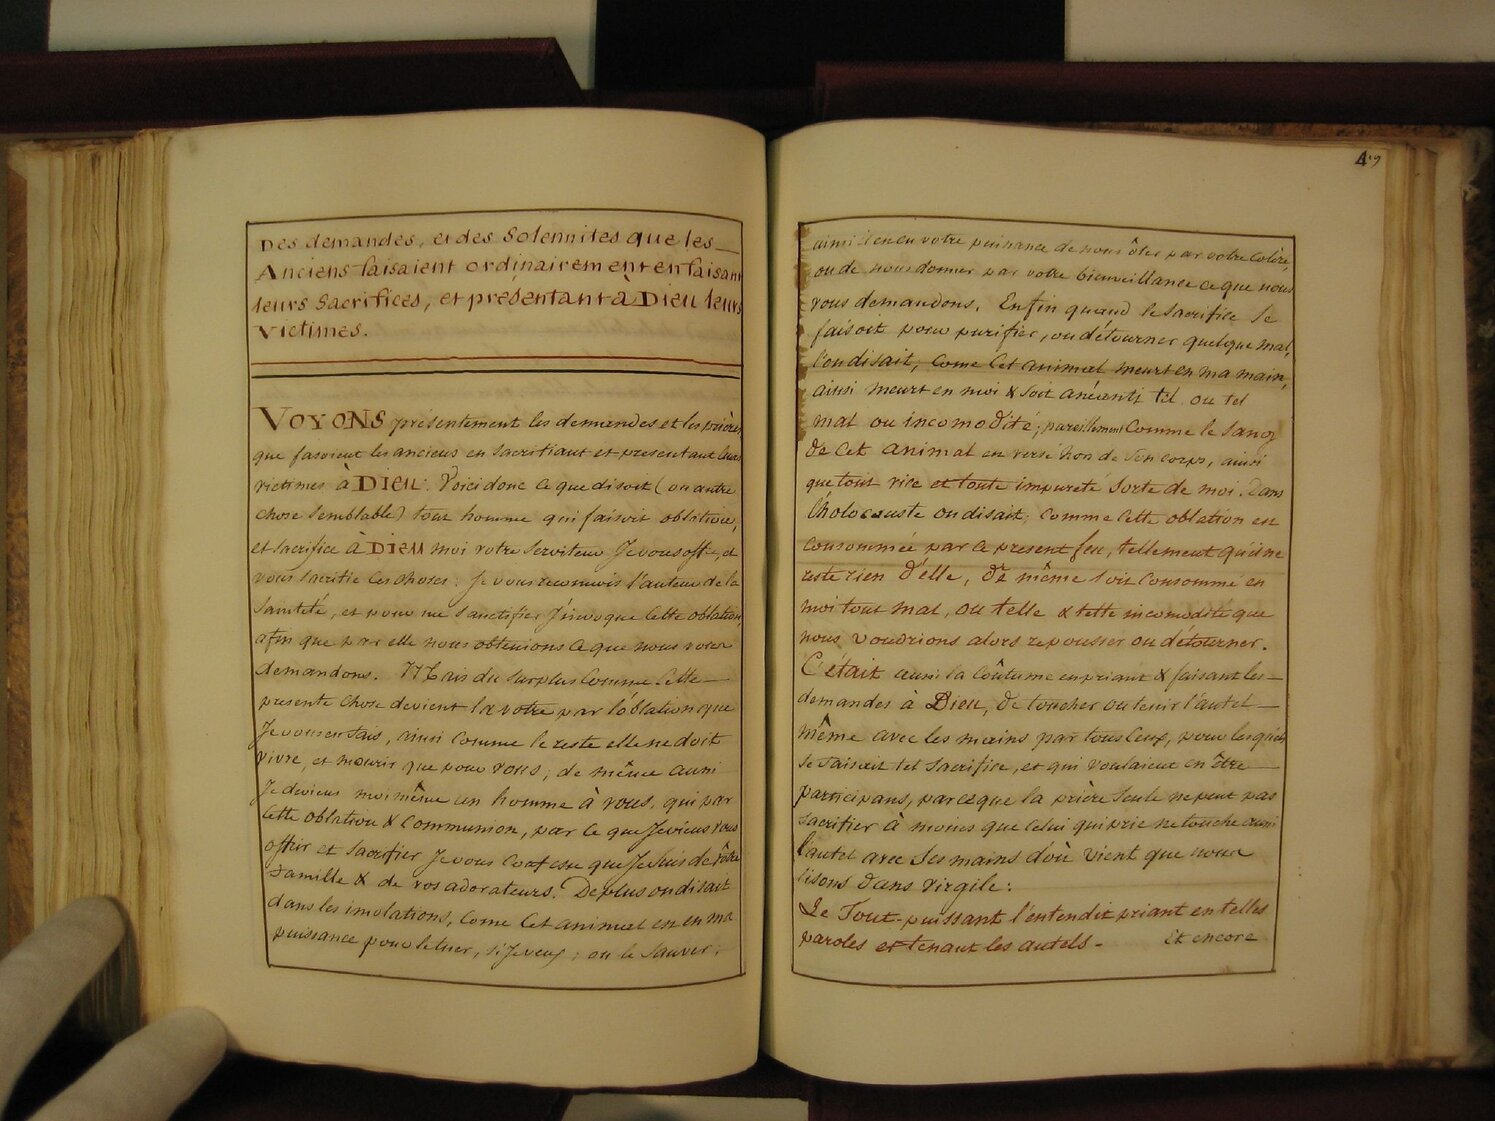 Des demandes, et des solennites que les
Anciens faisaient ordinairement en faisant
leurs sacrifices, et présentant à Dieu leurs
Victimes.
VOYONS présentement les demandes et les prières
que fasoient les anciens en sacrifiant et presentant leurs
victimes à DIEU. Voici donc ce que disoit (ou autre
chose semblable) tout homme qui faisoit oblation,
et sacrifice à DIEU moi votre serviteur Je vous offre, et
vous sacrifie ces choses; Je vous reconnois l'auteur de la
Sainteté, et pour me sanctifier J'invoque cette oblation,
afin que par elle nous obtenions ce que nous vous
demandons. Mais du surplus Comme Cette
presente chose devient la votre par l'oblation que
Je vous en fais, ainsi comme le reste elle ne doit
vivre, et mourir que pour vous; de même aussi
Je deviens moi même un homme à vous, qui par
cette oblation & Communion, par ce que Je viens vous
offrir et sacrifier Je vous confesse que Je suis de vôtre
famille & de vos adorateurs. De plus on disait
dans les imolations, Come Cet animal est en ma
puissance pour le tuer, si Je veux; ou le sauver;
49
ainsi il est en votre puissance de nous ôter par votre Colère,
ou de nous donner par votre bienveillance ce que nous
vous demandons. Enfin quand le sacrifice se
faisoit pour purifier, ou détourner quelque mal,
l'on disait, Come Cet animal meurt en ma main,
ainsi meurt en moi & soit anéanti tel ou tel
mal ou incomodité; pareillement Comme le sang
de Cet animal est versé hors de son corps, ainsi
que tout vice et toute impureté sorte de moi. Dans
l'holocauste on disait; Comme Cette oblation est
consommée par ce present feu, tellement qu'il ne
reste rien d'elle, de même soit Consommé en
moi tout mal, ou telle & telle incomodité que
nous voudrions alors repousser ou détourner.
C'était aussi la Coûtume en priant & faisant les
demandes à Dieu, de toucher ou tenir l'autel
même avec les mains par tous Ceux, pour lesquels
se faisoit tel sacrifice, et qui voulaient en être
participans, parceque la prière seule ne peut pas
sacrifier à moins que Celui qui prie ne touche aussi
l'autel avec ses mains d'où vient que nous
lisons dans Virgile:
Le Tout-puissant l'entendit priant en telles
paroles et tenant les autels.
Et encore